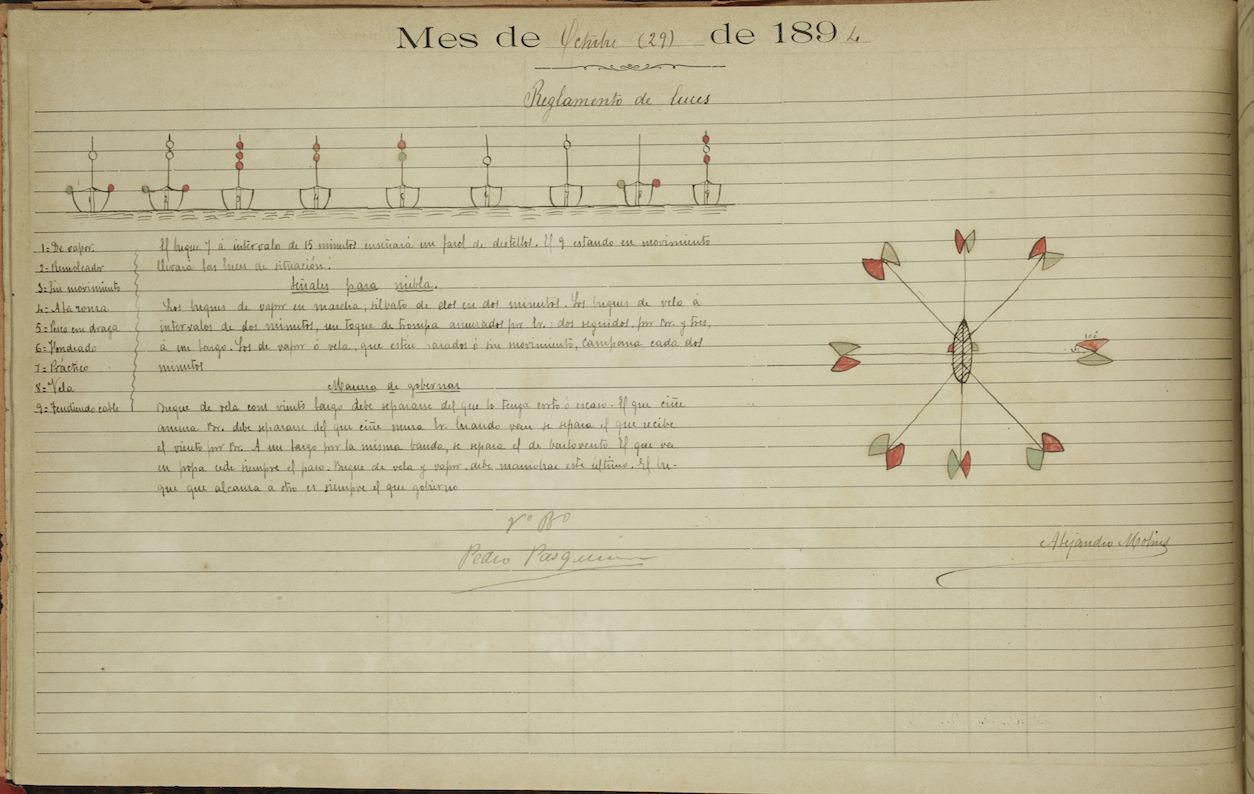 Mes de Octubre (29) de 1894
Reglamento de luces
1 2 3 4 5 6 7 8 9
1=De vapor
2=Remolcador
3=Sin movimiento
4=A la ronza
5=Pesca con draga
6=Fondeado
7=Práctico
8=Vela
9=Tendiendo cable
El buque 7 á intervalo de 15 minutos enseñará un farol de destellos. El 9 estando en movimiento
llevará las luces de situación.
Señales para niebla.
Los buques de vapor en marcha, silbato de dos en dos minutos. Los buques de vela á
intervalos de dos minutos, un toque de trompa amurados por Er.; dos seguidos, por Br. y tres,
á un largo. Los de vapor ó vela, que esten parados ó sin movimiento, campana cada dos
minutos
Manera de gobernar
Buque de vela con viento largo debe separarse del que lo tenga corto ó escaso. El que ciñe
amura Br. debe separarse del que ciñe mura Er. Cuando van se separa el que recibe
el viento por Br. A un largo por la misma banda, se separa el de barlovento. El que va
en popa cede siempre el paso. Buque de vela y vapor, debe maniobrar este último. El bu-
que que alcanza a otro es siempre el que gobierna
Vº Bº
Pedro
Alejandro Molins